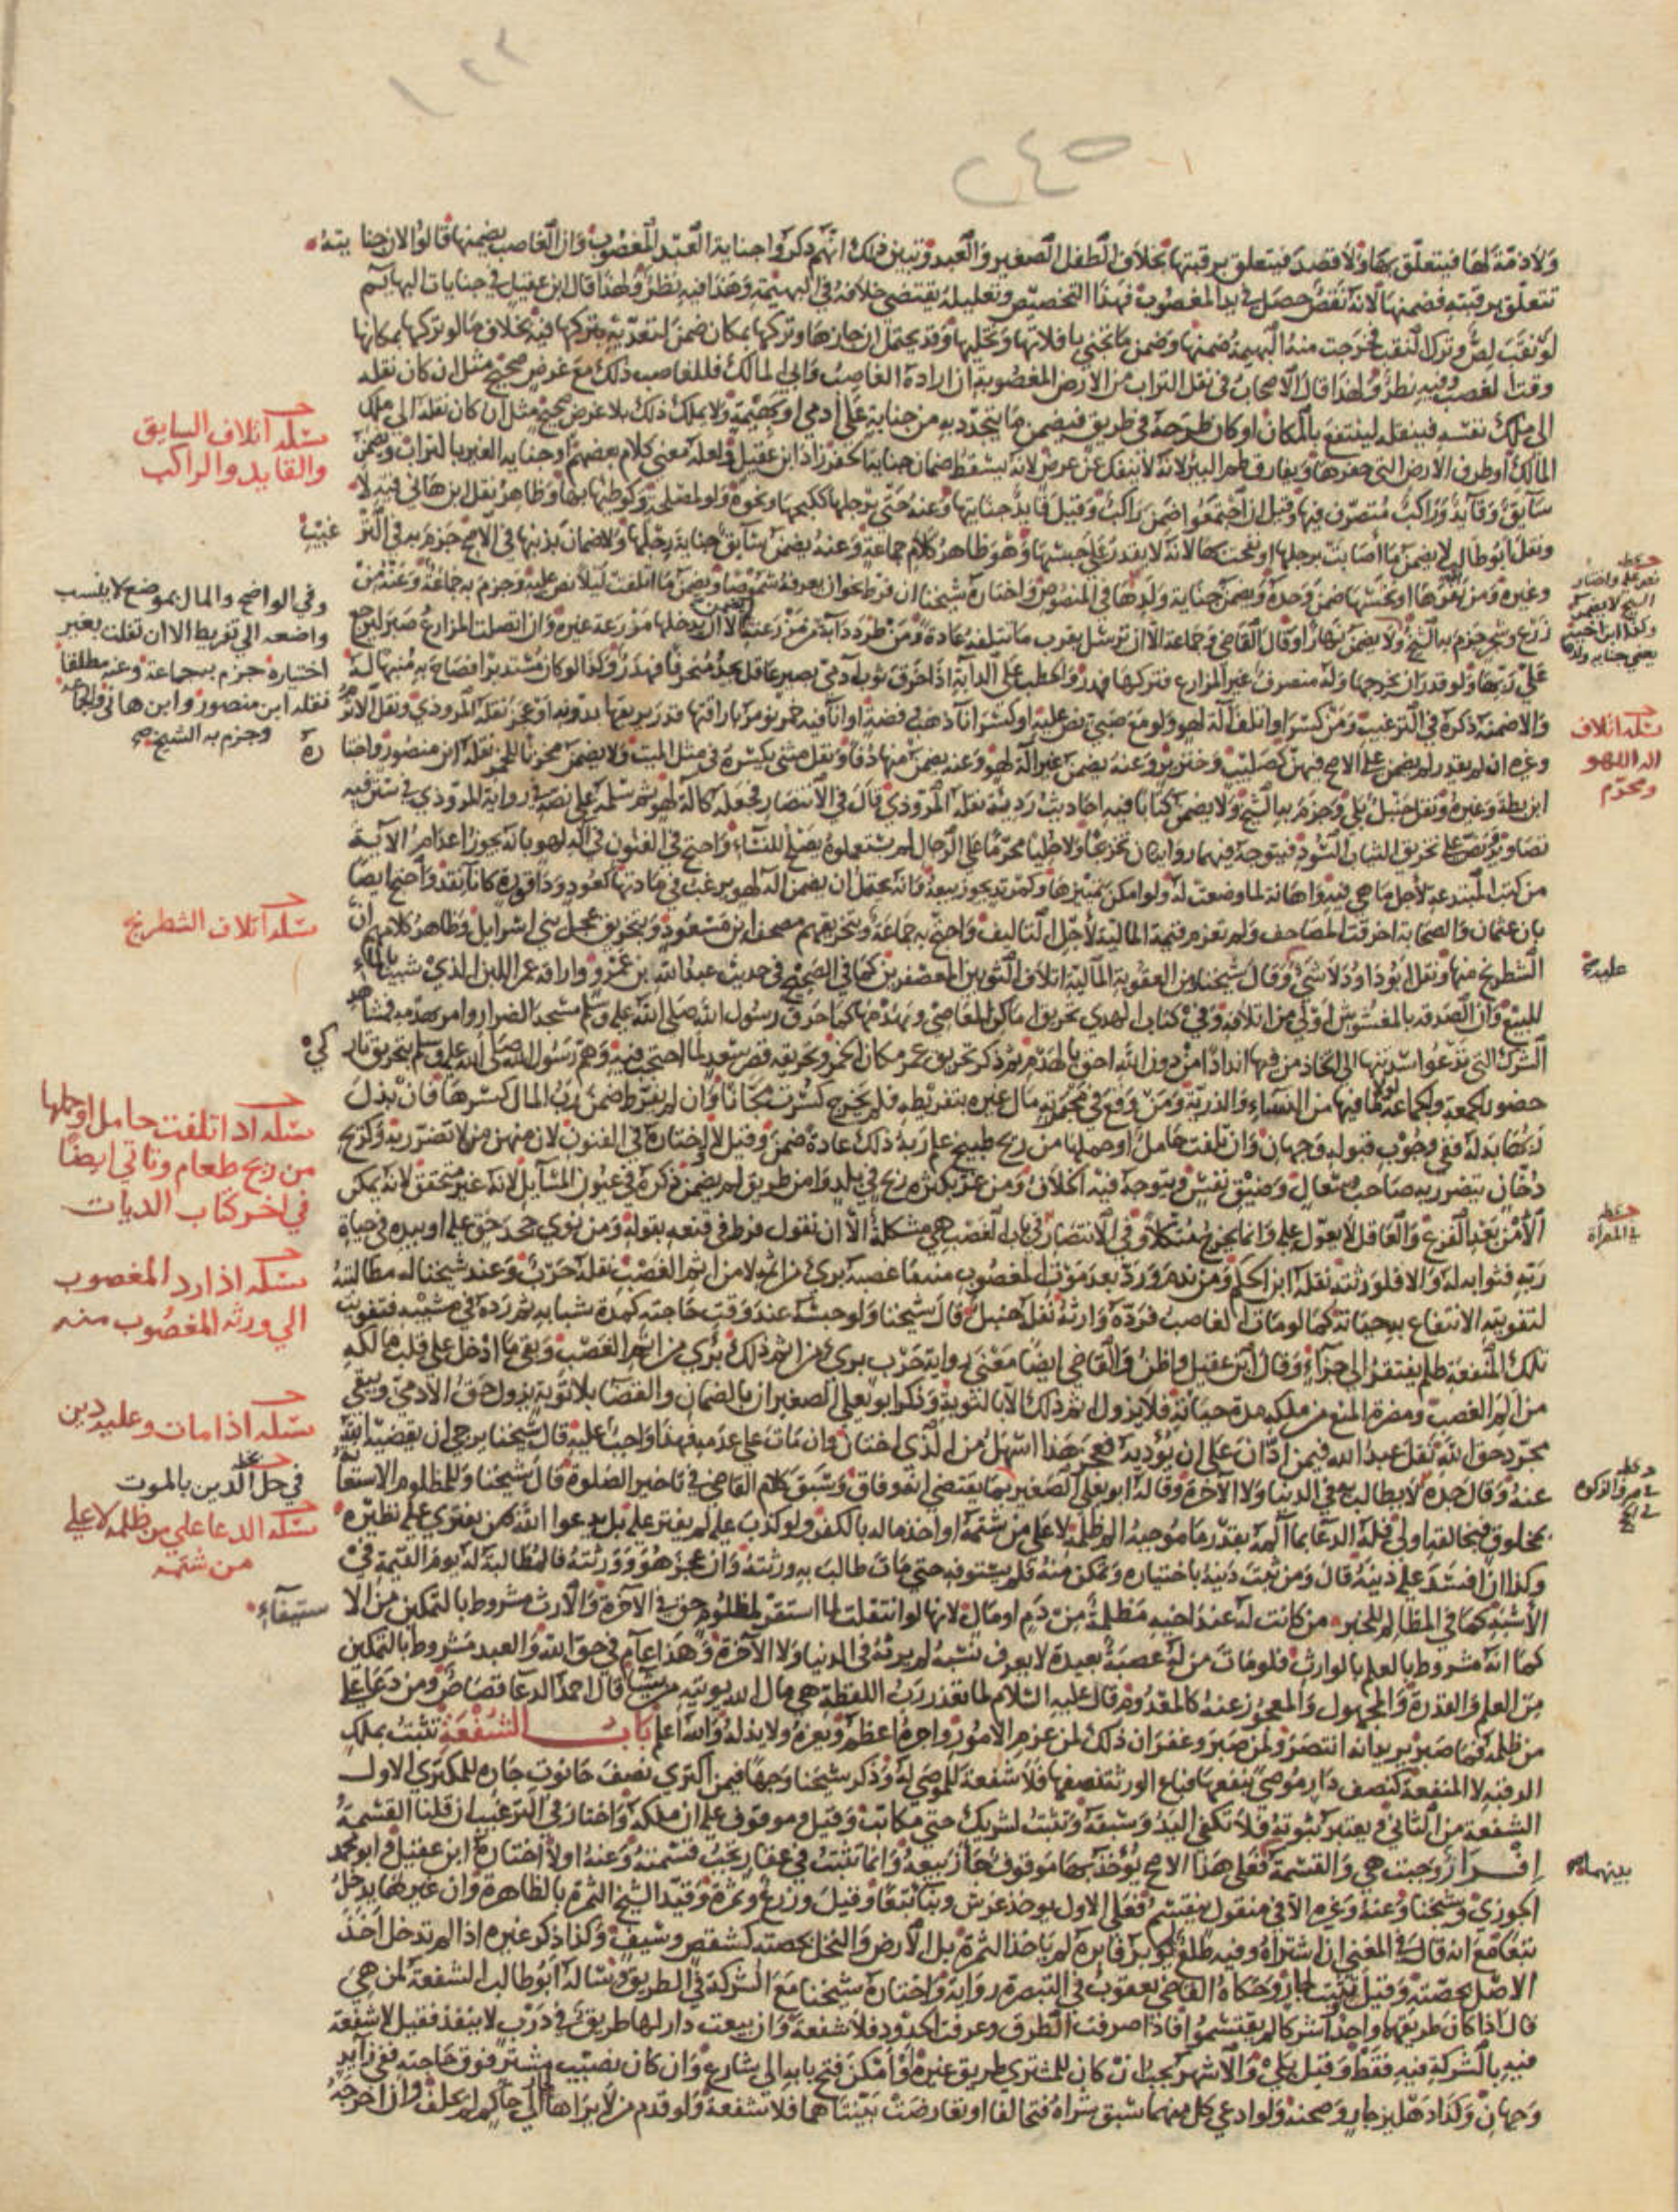 ١٢٢
٢٤٥
ولا ذمة لها فيتعلق بها ولا قصد فيتعلق برقبتها بخلاف الطفل الصغير والعبد وتبين ذلك انهم ذكروا جناية العبد المغصوب وان الغاصب يضمنها قالوا لان جنايته
تتعلق برقبته فضمنها لانه نقص حصل في يد المغصوب فهذا التخصيص وتعليله يقتضي خلافه في البهيمة وهذا فيه نظر ولهذا قال ابن عقيل في جنايات البهايم
لو نقب لص وترك النقب فخرجت منه البهيمة ضمنها وضمن ما تجني بافلاتها وتخليتها وقد يحتمل ان حازها وتركها بمكان ضمن لتعديه بتركها فيه بخلاف ما لو تركها بمكانها
وقت الغصب وفيه نظر ولهذا قال الاصحاب في نقل التراب من الارض المغصوبة ان اراده الغاصب وابى المالك فللغاصب ذلك مع غرض صحيح مثل ان كان نقله
الى ملك نفسه فينقله لينتفع بالمكان او كان طرحه في طريق فيضمن ما يتجدد به من جناية على آدمي او بهيمة ولا يملك ذلك بلا غرض صحيح مثل ان كان نقله الى ملك
المالك او طرف الارض التي حفرها ويفارق طم البير لانه لا ينفك عن غرض لانه يسقط ضمان جناية الحفر زاد ابن عقيل ولعله معنى كلام بعضهم او جناية الغير بالتراب ويضمن
سايق وقايد وراكب متصرف فيها وقيل ان اجتمعوا ضمن راكب وقيل قايد جنايتها وعنه حتى برجلها ككبحها ونحوه ولو لمصلحة وكوطئها بها وظاهر نقل ابن هاني فيه لا
ونقل ابو طالب لا يضمن ما اصابت برجلها او نفحت بها لانه لا يقدر على حبسها وهو ظاهر كلام جماعة وعنه يضمن سايق جناية رجلها ولا ضمان بذنبها في الاصح جزم به في الترغيب
وغيره ومن نفرها او نخسها ضمن وحده ويضمن جناية ولدها في المنصوص واختار شيخنا ان فرط نحو ان يعرفه شموصا ويضمن ما اتلفت ليلا نص عليه وجزم به جماعة وعنه من
زرع وشجر جزم به الشيخ ولا يضمن نهارا وقال القاضي وجماعة الا ان ترسل بقرب ما تتلفه عادة ومن طرد دابة من مزرعته لم يضمن الا ان يدخلها مزرعة غيره وان اتصلت المزارع صبر ليرجع
على ربها ولو قدر ان يخرجها وله منصرف غير المزارع فتركها فهدر والحطب على الدابة اذا خرق ثوب آدمي بصير عاقل يجد منحرفا فهدر وكذا لو كان مستدبرا فصاح به منبها له
والا ضمنه ذكره في الترغيب ومن كسر او اتلف آلة لهو ولو مع صبي نص عليه او كسر انا ذهب وفضة او انا فيه خمر يومر باراقتها قدر يريقها بدونه او عجز نقله المروذي ونقل الاثرم
وغيره ان لم يقدر لم يضمن على الاصح فيهن كصليب وخنزير وعنه يضمن غير آلة لهو وعنه يضمن منها دفا ونقل مثنى يكسره في مثل الميت ولا يضمن مخزنا للخمر نقله ابن منصور واختاره
ابن بطة وغيره ونقل حنبل بلى وجزم به الشيخ ولا يضمن كتابا فيه احاديث رديئة نقله المروذي قال في الانتصار فجعله كآلة لهو ثم سلمه على نصه في رواية المروذي في ستر فيه
تصاوير ونص على تخريق الثياب السود فيتوجه فيهما روايتان تخرعا ولا حليا محرما على الرجال لم يستعملوه يصلح للنساء واحتج في الفنون في آلة لهو بانه يجوز اعدامه الآية
من كتب المبتدعة لاجل ما هي فيه واهانة لما وضعت له ولو امكن تمييزها وكمرتد يجوز بيعه وانه يحتمل ان يضمن آلة لهو يرغب في مادتها كعود وداقورة كانا نقد واحتج ايضا
بان عثمان والصحابة احرقت المصاحف ولم تغرم قيمة المالية لاجل التاليف واحتج به جماعة وبتحريقهم مصحف ابن مسعود وبتحريق عجل بني اسرايل وظاهر كلامهم ان
الشطرنج منها ونقل ابو داود لا شي وقال شيخنا ومن العقوبة المالية اتلاف الثوبين المعصفرين كما في الصحيح في حديث عبد الله بن عمرو واراقة عمر اللبن الذي شيب بالماء
للبيع وان الصدقة بالمغشوش اولى من اتلافه وفي كتاب الهدي تحريق اماكن المعاصي وهدمها كما حرق رسول الله صلى الله عليه وسلم مسجد الضرار وامر بهدمه فمشاهد
الشرك التي تدعو سدنتها الى اتخاذ من فيها اندادا من دون الله احق بالهدم ثم ذكر تحريق عمر مكان الخمر وتحريقه قصر سعد لما احتجب فيه وهم رسول الله صلى الله عليه وسلم بتحريق تاركي
حضور الجمعة والجماعة لولا ما فيها من النساء والذرية ومن وقع في محبرته مال غيره بتفريطه فلم يخرج كسرت مجانا وان لم يفرط ضمن رب المال كسرها فان بذل
ربها بدله ففي وجوب قبوله وجهان وان تلفت حامل او حملها من ريح طبيخ علم ربه ذلك عادة ضمن وقيل لا واختاره في الفنون لان منهن من لا تتضرر ربه وكريح
دخان يتضرر به صاحب سعال وضيق نفس ويتوجه فيه الخلاف ومن عثر بكثرة ريح في بلد وامن طريق لم يضمن ذكره في عيون المسايل لانه غير متحقق لانه يمكن
الامن بعد الفزع والعاقل لا يعول عليه وانما يخرج متكلا وفي الانتصار في باب الغصب هي مشكلة الا ان نقول فرط في قنعه بقوله ومن نوى جحد حق عليه او بيده في حياة
ربه فثوابه له والا فلورثته نقله ابن الحكم ومن ندم ورد بعد موت المغصوب منه ما غصبه برئ من اثمه لا من اثم الغصب نقله حرب وعند شيخنا له مطالبته
لتفويته الانتفاع به حياته كما لو مات الغاصب فرده وارثه نقله حنبل قال شيخنا ولو حبسه عند وقت حاجته كمدة شبابه ثم رده في مشيبه فتفويت
تلك المنفعة ظلم يفتقر الى جزاء وقال ابن عقيل واظن والقاضي ايضا معنى رواية حرب برئ من اثم ذلك برئ من اثم الغصب وبقي ما ادخل على قلب مالكه
من الم الغصب ومضرة المنع من ملكه مدة حياته فلا يزول اثم ذلك الا بالتوبة وذكر ابو يعلى الصغير ان بالضمان والقضا بلا توبة يزول حق الآدمي ويبقى
مجرد حق الله نقل عبد الله فيمن ادان على ان يؤديه فعجز هذا اسهل من الذي اختان وان مات على عدمه فهذا واجب عليه قال شيخنا يرجى ان يقضيه الله
عنه وقال جده لا يطالب به في الدنيا ولا الآخرة وقاله ابو يعلى الصغير بما يقتضي انه وفاق وسبق كلام القاضي في تاخير الصلوة قال شيخنا وللمظلوم الاستعانة
بمخلوق فبخالقه اولى فله الدعا بما آلمه بقدر ما موجبه الم ظلمه لا على من شتمه او اخذ ماله بالكفر ولو كذب عليه لم يفتر عليه بل يدعو الله بمن يفتري عليه نظيره
وكذا ان افسد عليه دينه قال ومن بقي دينه باختياره وتمكن منه فلم يستوفه حتى مات طالب به ورثته وان عجز هو وورثته فالمطالبة له يوم القيمة في
الاشبه كما في المظالم للخبر من كانت له عند اخيه مظلمة من دم او مال لانها لو انتقلت لما استقر لمظلوم حق في الآخرة والارث مشروط بالتمكين من الاستيفاء
كما انه مشروط بالعلم بالوارث فلو مات من له عصبة بعيدة لا يعرف نسبه لم يرثه في الدنيا ولا الآخرة وهذا عام في حق الله والعبد مشروط بالتمكين
من العلم والقدرة والمجهول والمعجوز عنه كالمعدوم قال عليه السلام لما تعذر رب اللقطة هي مال الله يوتيه من يشا قال احمد الدعا قصاص ومن دعا على
من ظلمه فما صبر يريد انه انتصر ولمن صبر وغفر ان ذلك لمن عزم الامور واجره اعظم ويعزه ولا يذله والله اعلم باب الشفعة تثبت بملك
الرقبة لا المنفعة كنصف دار موصى بنفعها فباع الورثة نصفها فلا شفعة للموصى له وذكر شيخنا وجها فيمن اكترى نصف حانوت جاره للمكتري الاول
الشفعة من الثاني ويعتبر ثبوته فلا تكفي اليد وسبقه وتثبت لشريك حتى مكاتب وقيل وموقوف عليه ان ملكه واختار في الترغيب ان قلنا القسمة
افراز وجبت هي والقسمة فعلى هذا الاصح يؤخذ بها موقوف جاز بيعه وانما تثبت في عقار تجب قسمته وعنه اولا اختاره ابن عقيل وابو محمد
الجوزي وشيخنا وعنه وغيره الا في منقول ينقسم فعلى الاول يوخذ غرس وبنا تبعا وقيل وزرع وثمرة وقيد الشيخ الثمرة بالظاهرة وان غيرها يدخل
تبعا مع انه قال في المغني ان اشتراه وفيه طلع لم يؤبر فابره لم ياخذ الثمرة بل الارض والنخل بحصته كشقص وسيف وكذا ذكر غيره اذا لم تدخل اخذ
الاصل بحصته وقيل تثبت لجار وحكاه القاضي يعقوب في التبصرة رواية واختاره شيخنا مع الشركة في الطريق وسأله ابو طالب الشفعة لمن هي
قال اذا كان طريقهما واحدا شركا لم يقتسموا فاذا صرفت الطرق وعرفت الحدود فلا شفعة وان بيعت دار لها طريق في درب لا ينفذ فقيل لا شفعة
فيه بالشركة فيه فقط وقيل بلى والاشهر يجب ان كان للمشتري طريق غيره او امكن فتح بابه الى شارع وان كان نصيب مشتر فوق حاجته ففي زايد
وجهان وكذا دهليز جار وصحنه ولو ادعى كل منهما سبق شراه فتحالفا او تعارضت بينتاهما فلا شفعة ولو قدم من لا يراها الى حاكم لم يحلف وان اخرجه
مسئلة اتلاف السايق
والقايد والراكب
وفي الواضح والمال بموضع لا ينسب
واضعه الى تفريط الا ان تفلت بغير
اختياره جزم به جماعة وعنه مطلقا
نقله ابن منصور وابن هاني وجماعة
وجزم به الشيخ
مسئلة اتلاف الشطرنج
مسئلة اذا تلفت حامل او حملها
من ريح طعام وتاتي ايضا
في اخر كتاب الديات
مسئلة اذا رد المغصوب
الى ورثة المغصوب منه
مسئلة اذا مات وعليه دين
في حل الدين بالموت
مسئلة الدعا على من ظلمه لا على
من شتمه
نص عليه واختار
الشيخ لا يضمن
مسئلة اتلاف
الة اللهو
ومحرم
عليه
بينهما